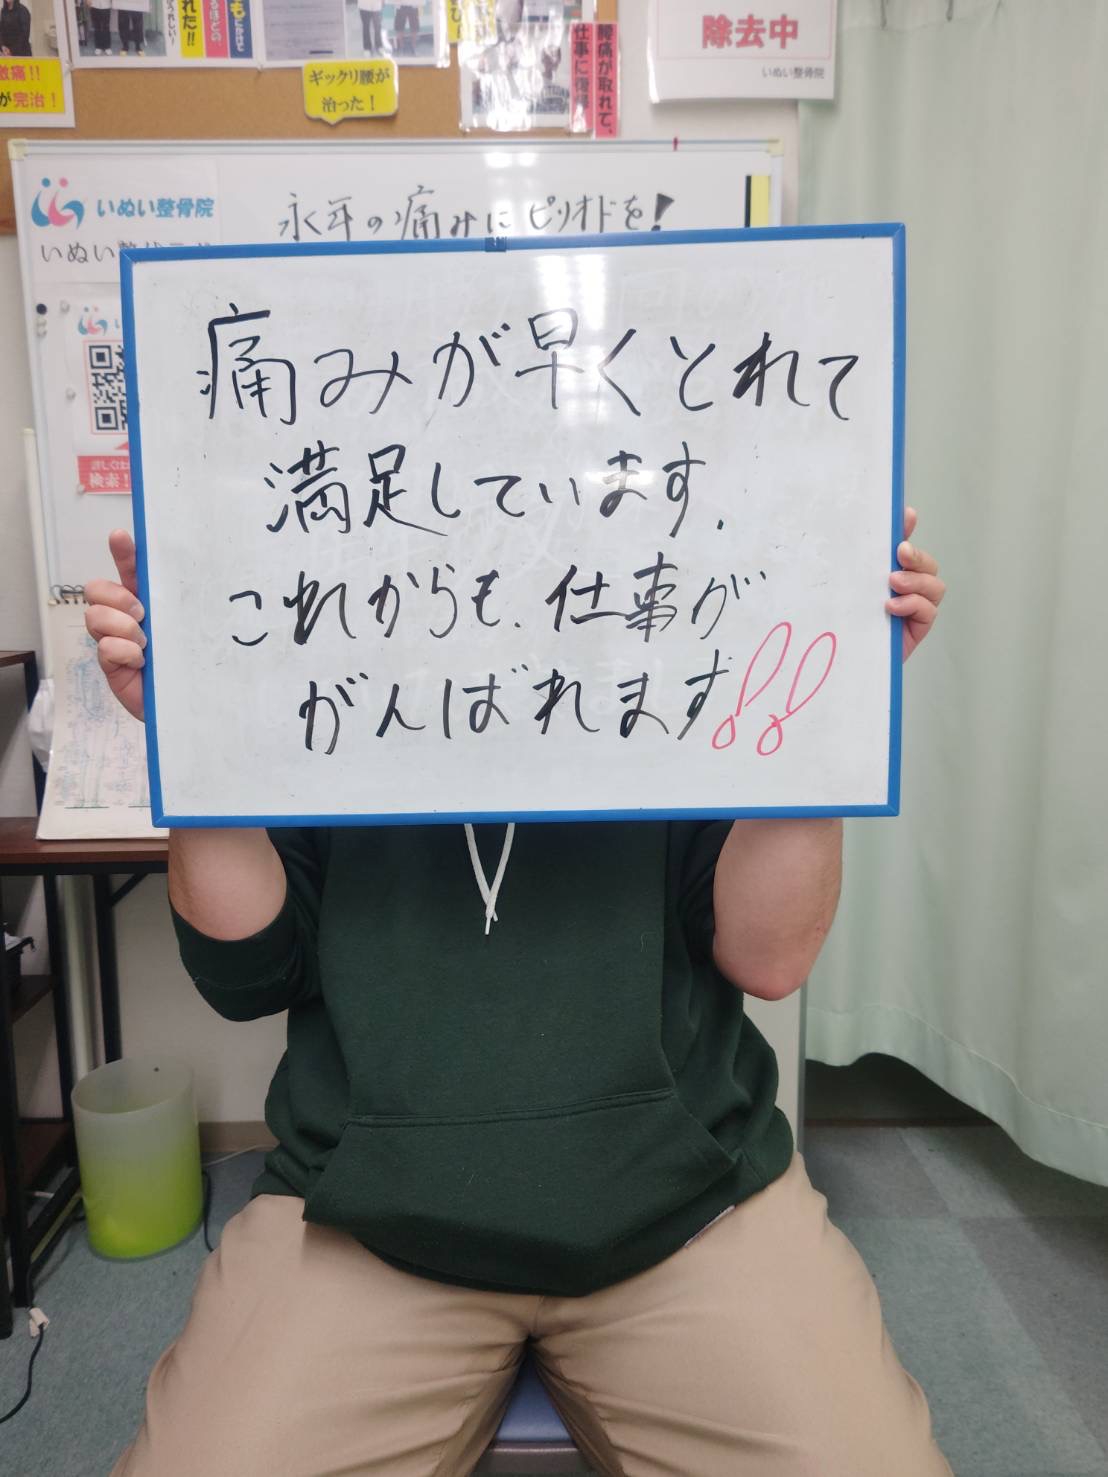 れた!!
激痛!!
が完治！
ギックリ腰が
治った！
腰痛が取れて、
仕事に復帰
除去中
いぬい整骨院
いぬい整骨院
永年の痛みにピリオドを！
いぬい
検索！
痛みが早くとれて
満足しています.
これからも、仕事が
がんばれます!!